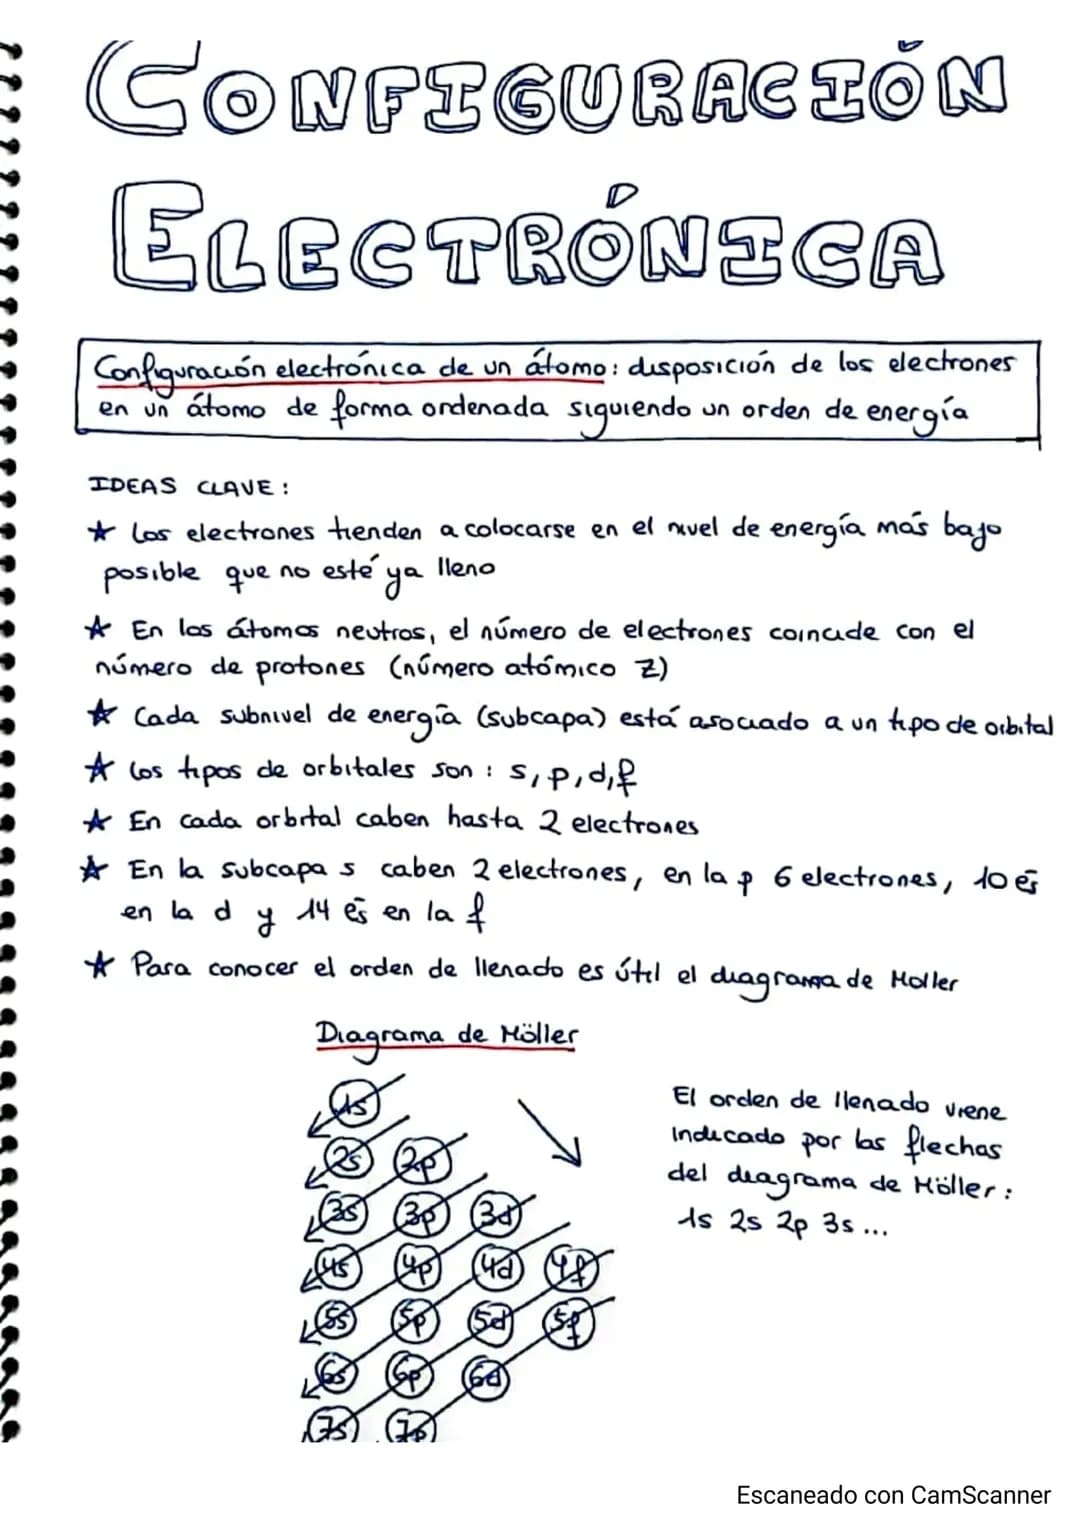 CONFIGURACIÓN
ELECTRÓNICA
Configuración electrónica de un átomo: disposición de los electrones
en un átomo de forma ordenada siguiendo un orden de energía
IDEAS CLAVE:
★ Los electrones tienden a colocarse en el nivel de energía más bajo
posible que no esté ya lleno
★ En los átomos neutros, el número de electrones coincide con el
número de protones (número atómico Z)
★ Cada subnivel de energía (subcapa) está asociado a un tipo de orbital
★ Los tipos de orbitales son: s, p, d, f
★ En cada orbital caben hasta 2 electrones
★ En la subcapa s caben 2 electrones, en la p 6 electrones, 10 es
en la d y 14 es en la f
★ Para conocer el orden de llenado es útil el diagrama de Moller
Diagrama de Möller
1s
2s 2p
3s 3p 3d
4s 4p 4d 4f
5s 5p 5d 5f
6s 6p 6d
7s 7p
El orden de llenado viene
indicado por las flechas
del diagrama de Möller:
1s 2s 2p 3s...
Escaneado con CamScanner